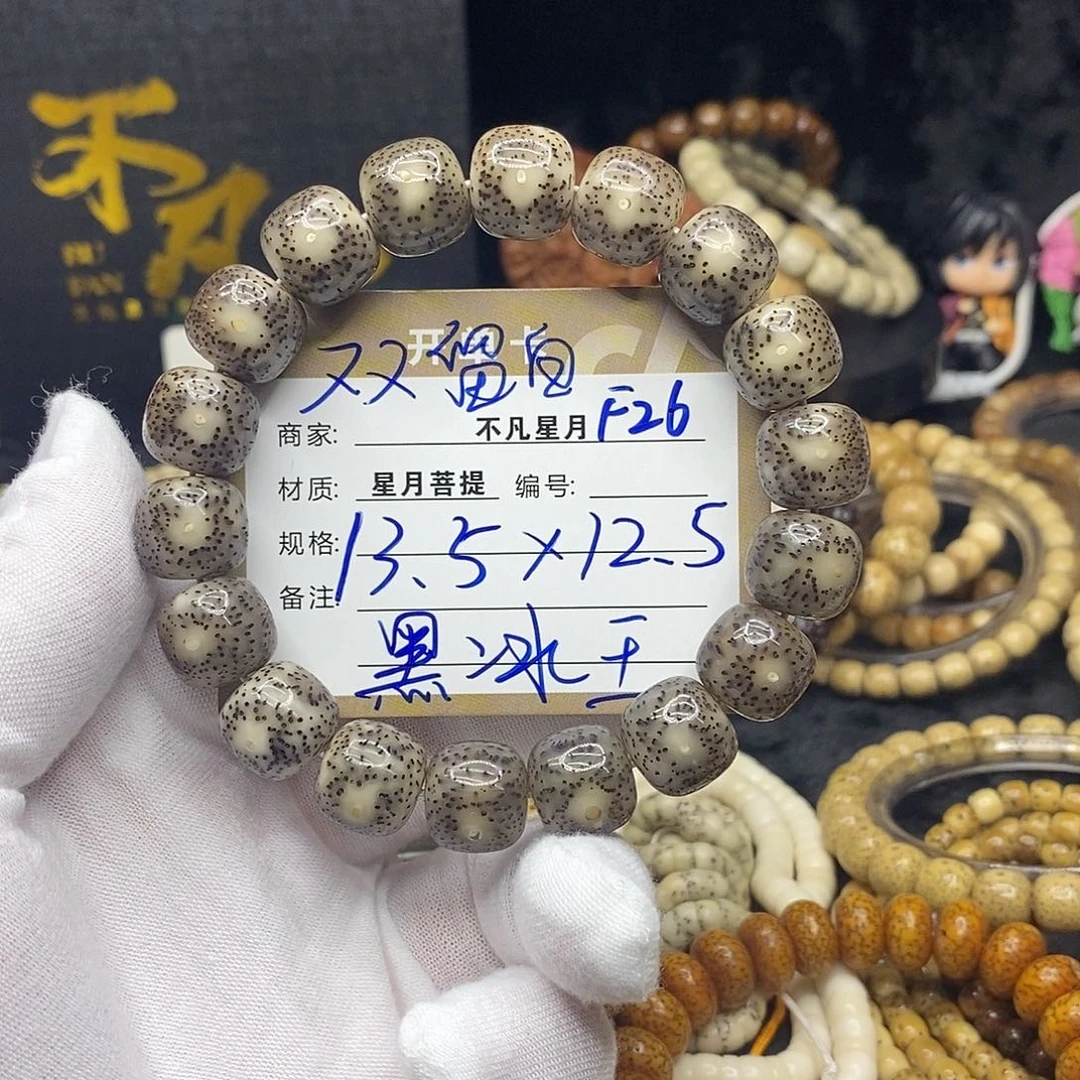 不凡
BU
FAN
开单卡
双留白
商家: 不凡星月 F26
材质: 星月菩提 编号:
规格: 13.5×12.5
备注:
黑冰王